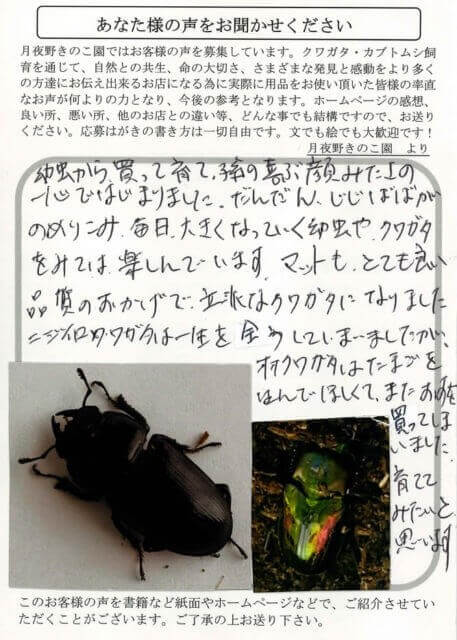 あなた様の声をお聞かせください
月夜野きのこ園ではお客様の声を募集しています。クワガタ・カブトムシ飼
育を通じて、自然との共生、命の大切さ、さまざまな発見と感動をより多く
の方達にお伝え出来るお店になる為に実際に用品をお使い頂いた皆様の率直
なお声が何よりの力となり、今後の参考となります。ホームページの感想、
良い所、悪い所、他のお店との違い等、どんな事でも結構ですので、お送り
ください。応募はがきの書き方は一切自由です。文でも絵でも大歓迎です！
月夜野きのこ園 より
幼虫から、買って育て、孫の喜ぶ顔みたさの
一心ではじまりました。だんだん、じじばばが
のめりこみ、毎日、大きくなっていく幼虫や、クワガタ
をみては、楽しんでいます。マットも、とても良い
品質のおかげで、立派なクワガタになりました
ニジイロクワガタは一生を全うしてしまいましたが、
オオクワガタはたまごを
うんでほしくて、また
買ってしま
いました。
育てて
みたいと
思います
このお客様の声を書籍など紙面やホームページなどで、ご紹介させてい
ただくことがございます。ご了承の上お送り下さい。